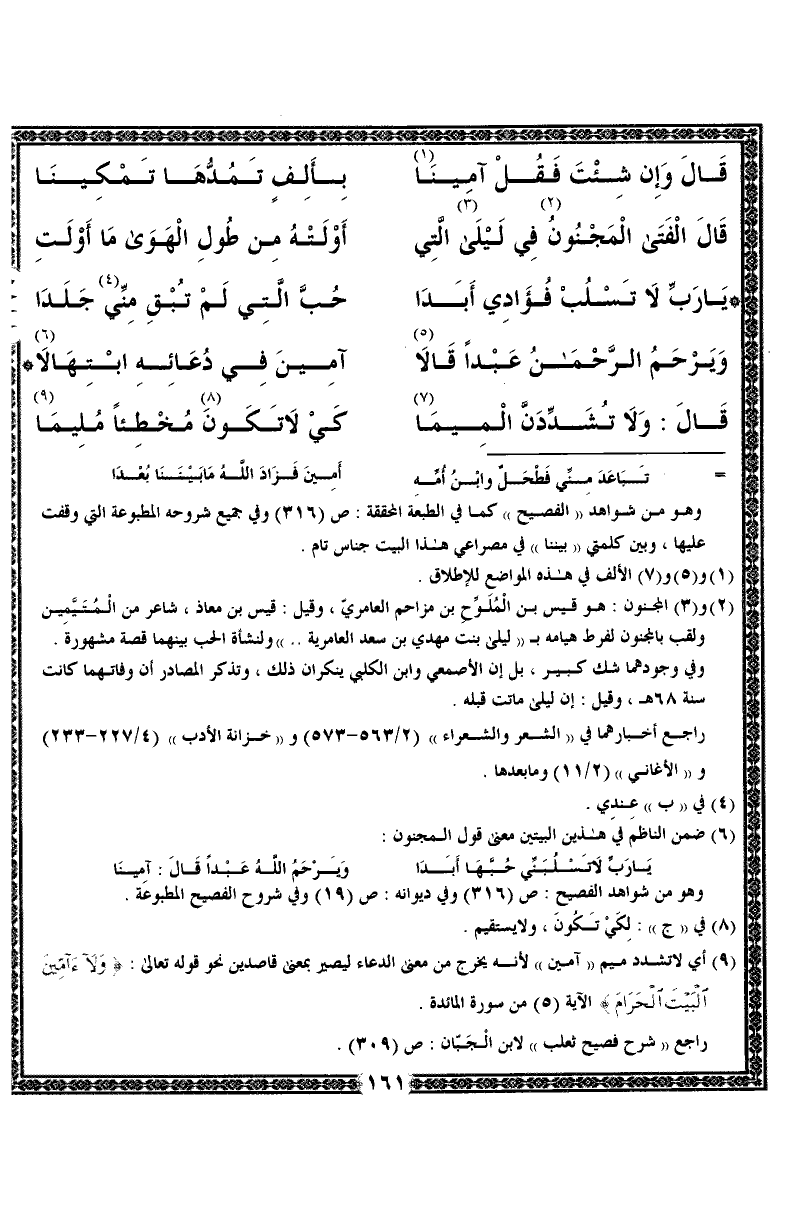 قَـالَ وَإِن شِـئْتَ فَـقُـلْ آمِـينَـا (١) بِـأَلِـفٍ تَـمُدُّهَـا تَـمْـكِـيـنَـا
قَالَ الْفَتَىٰ الْمَجْنُونُ (٢) فِي لَيْلَىٰ (٣) الَّتِي أَوْلَتْـهُ مِـن طُولِ الْهَوَىٰ مَا أَوْلَـتِ
*يَـارَبِّ لَا تَـسْـلُبْ فُـؤَادِي أَبَـدَا حُبَّ الَّـتِـي لَـمْ تُـبْـقِ مِنِّي (٤) جَـلَـدَا
وَيَـرْحَـمُ الـرَّحْمَـٰنُ عَبْـداً قَـالَا (٥) آمِـيـنَ فِـي دُعَـائِـهِ ابْـتِـهَالَا* (٦)
قَـالَ : وَلَا تُـشَـدِّدَنَّ الْـمِـيمَـا (٧) كَـيْ لَاتَـكُـونَ (٨) مُـخْـطِئاً مُلِيمَـا (٩)
= تَـبَـاعَدَ مِـنِّي فَطْحَـلٌ وابْـنُ أُمِّـهِ أَمِـينَ فَـزَادَ اللَّـهُ مَابَيْـنَـنَا بُعْـدَا
وهـو مـن شـواهد « الفصيح » كمـا في الطبعة المحققة : ص (٣١٦) وفي جميع شروحه المطبوعة التي وقفت
عليها ، وبين كلمتي « بيننا » في مصراعي هـٰذا البيت جناس تام .
(١) و(٥) و(٧) الألف في هـٰذه المواضع للإطلاق .
(٢) و(٣) المجنون : هـو قيس بـن الْمُلَوَّحِ بن مزاحم العامريّ ، وقيل : قيس بن معاذ ، شاعر من الْـمُـتَيَّمِيـن
ولقب بالمجنون لفرط هيامه بـ « ليلىٰ بنت مهدي بن سعد العامرية .. » ولنشأة الحب بينهما قصة مشهورة .
وفي وجودهما شك كبـير ، بل إن الأصمعي وابن الكلبي ينكران ذلك ، وتذكر المصادر أن وفاتـهما كانت
سنة ٦٨هـ ، وقيل : إن ليلىٰ ماتت قبله .
راجـع أخـبارهما في « الشـعر والشـعراء » (٥٦٣/٢-٥٧٣) و « خـزانة الأدب » (٢٢٧/٤-٢٣٣)
و « الأغانـي » (١١/٢) ومابعدها .
(٤) في « ب » عِـندِي .
(٦) ضمن الناظم في هـٰذين البيتين معنىٰ قول الـمجنون :
يَـارَبِّ لَاتَـسْـلُبَنِّي حُـبَّـهَا أَبَـدَا وَيَـرْحَـمُ اللَّـهُ عَبْـداً قَـالَ : آمِينَا
وهـو من شـواهد الفصيح : ص (٣١٦) وفي ديوانه : ص (١٩) وفي شروح الفصيح المطبوعة .
(٨) في « ج » : لِكَيْ تَـكُونَ ، ولايستقيم .
(٩) أي لاتشدد ميم « آمين » لأنـه يخرج من معنىٰ الدعاء ليصير بمعنىٰ قاصدين نحو قوله تعالىٰ : ﴿ وَلَآ ءَآمِّينَ
ٱلْبَيْتَ ٱلْحَرَامَ ﴾ الآية (٥) من سورة المائدة .
راجع « شرح فصيح ثعلب » لابن الْـجَبَّان : ص (٣٠٩) .
١٦١